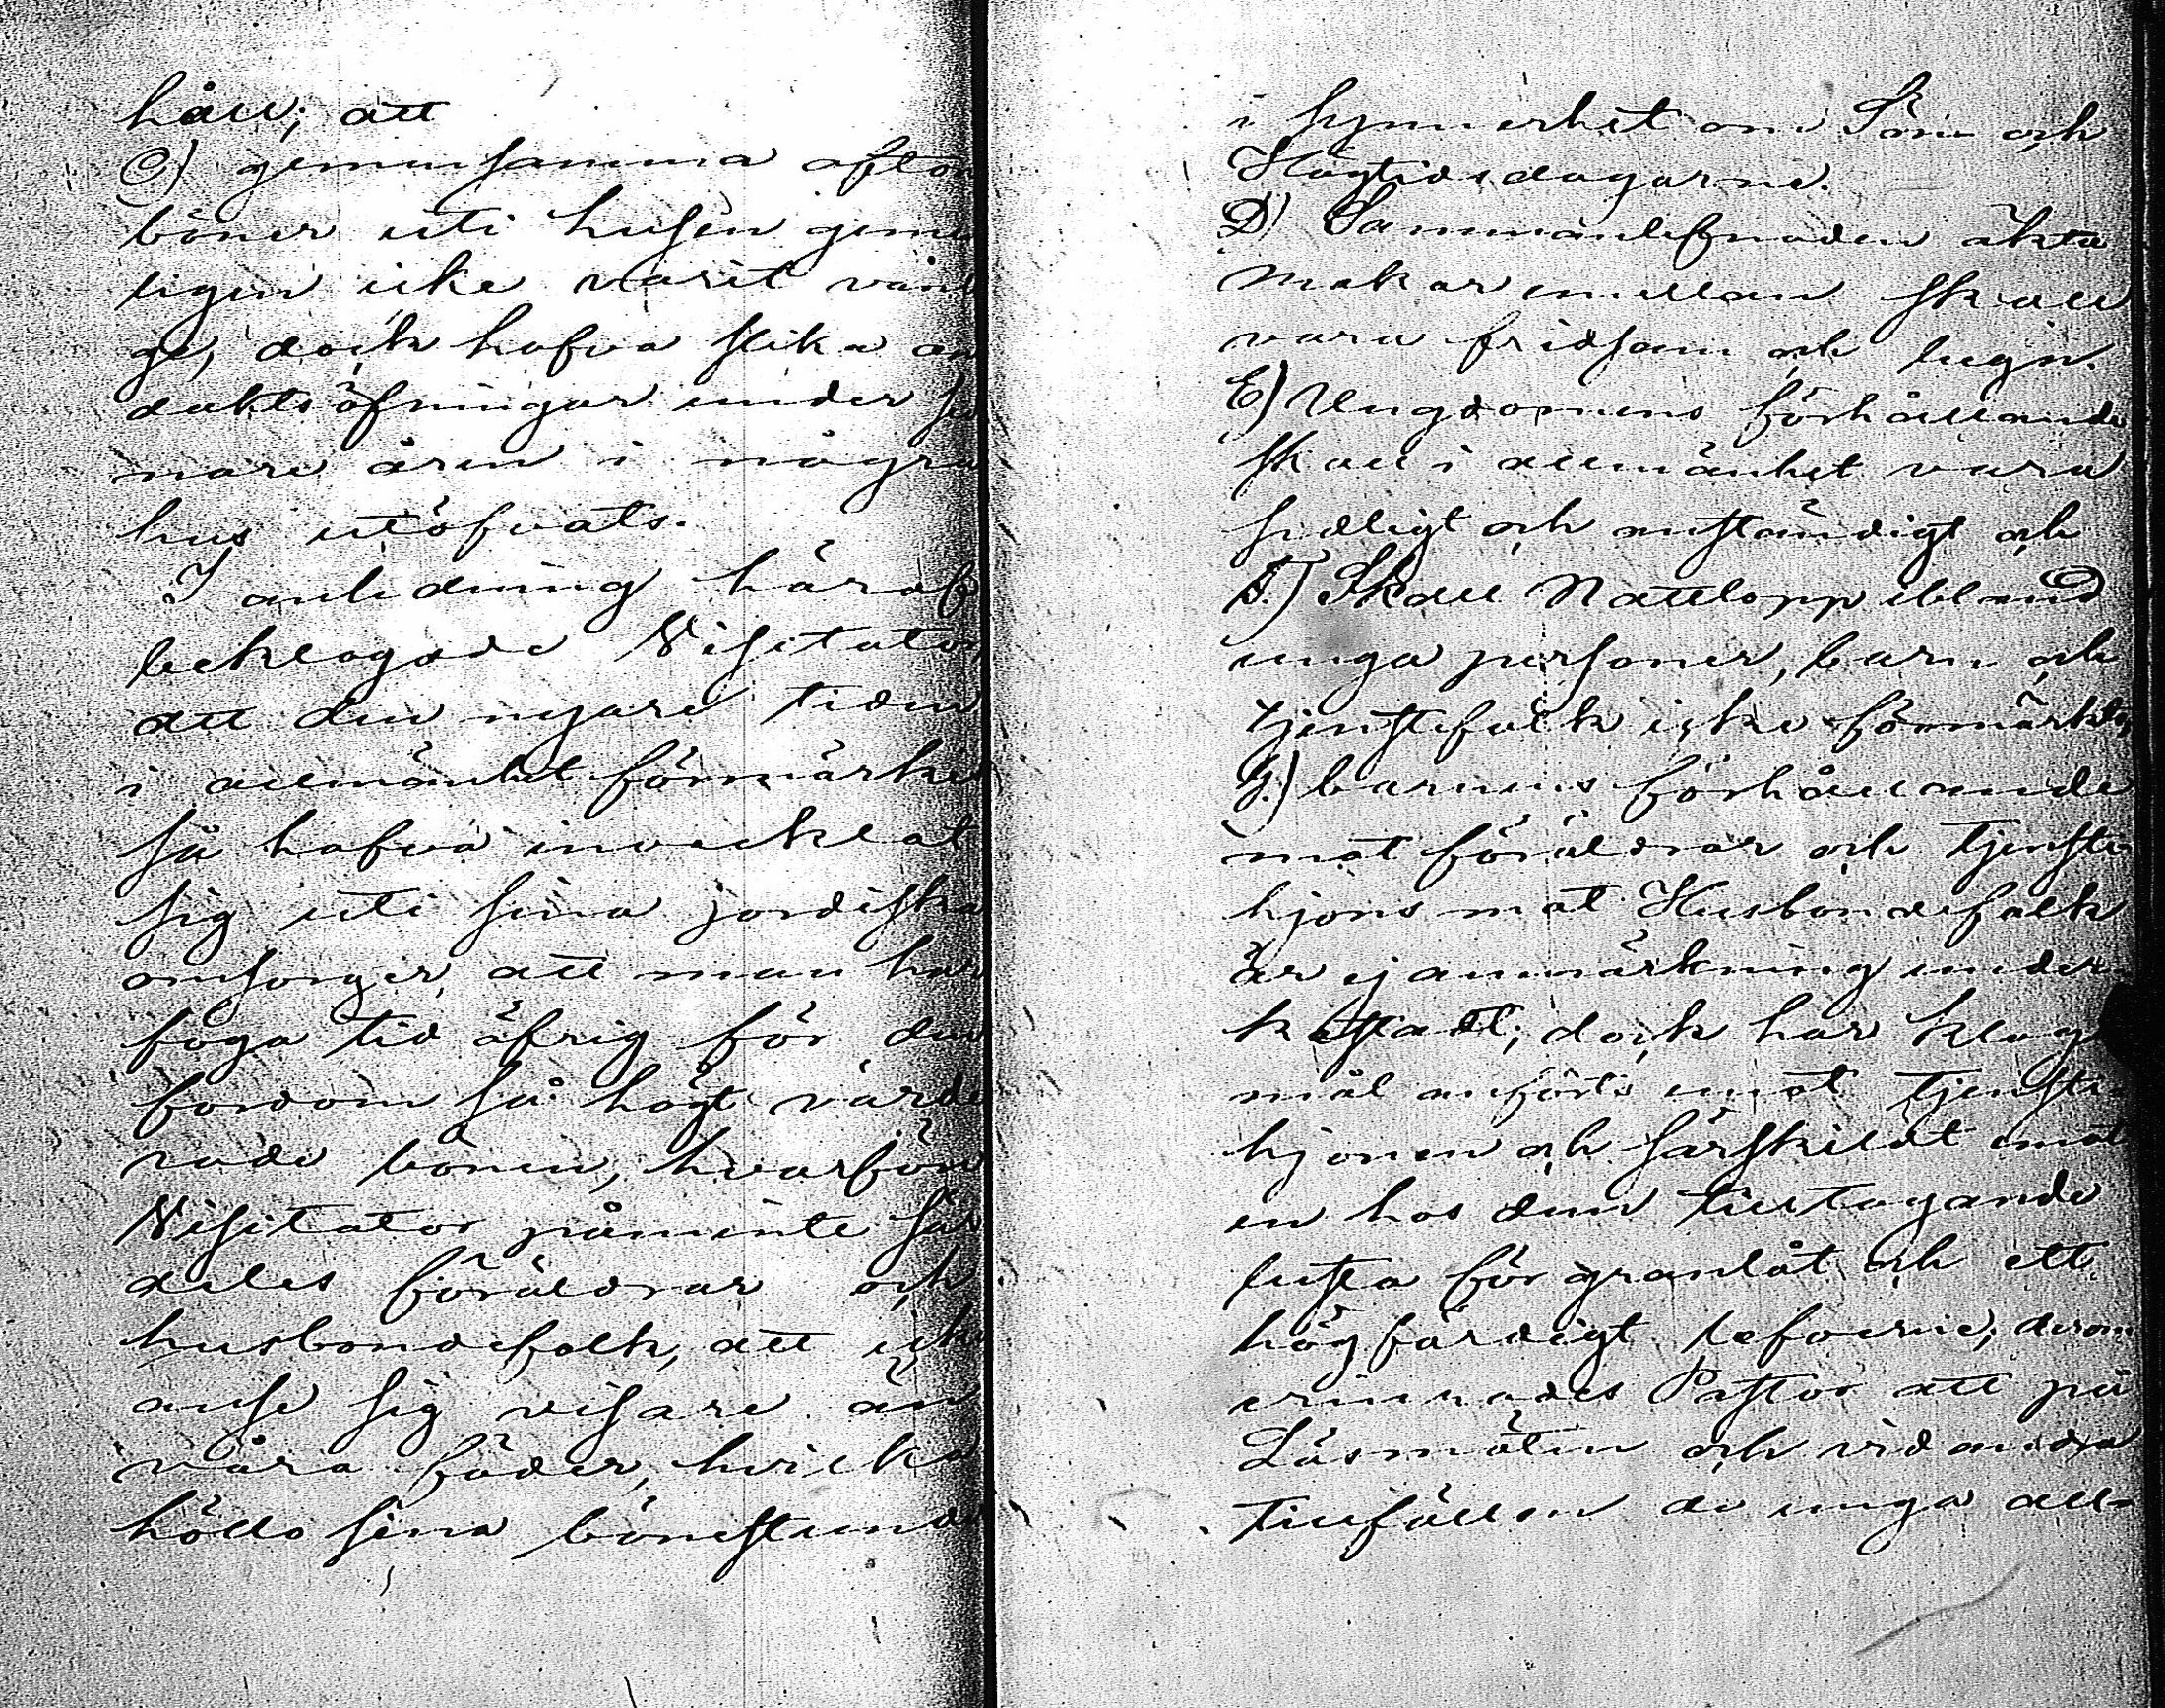 håll; att
C) gemensamma afton
böner uti husen geme
ligen icke varit vanl
ge, dock hafva slika an
daktsöfningar under se
nare åren i några
hus utöfvats.
I anledning häraf
beklagade Visitator
att den nyare tiden
i allmänhet förmärkes
så hafva invecklat
sig uti sina jordiska
omsorger, att man har
föga tid öfrig för den
fordom så högt värde
rade bönen, hvarföre
Visitator påminte sär
deles föräldrar och
husbondefolk, att icke
anse sig visare än
våra fäder, hvilka
höllo sina bönestunde
i synnerhet om Sön och
Högtidsdagarne.
D) Sammanlefnaden äkta
Makar emellan skall
vara fridsam och lugn.
E) Ungdomens förhållande
skall i allmänhet vara
sedligt och anständigt och
F.) Skall Nattlopp ibland
unga personer, barn och
tjenstefolk icke förmärkts,
G.) barnens förhållande
mot föräldrar och tjenste
hjons mot Husbondefolk
är ej anmärkning under
kastadt; dock har klago
mål anförts emot tjenste
hjonen och särskildt emot
en hos dem tilltagande
lusta för granlåt och ett
högfärdigt lefverne; derom
erinrades Pastor att på
Läsmöten och vid andra
tillfällen de unga all-